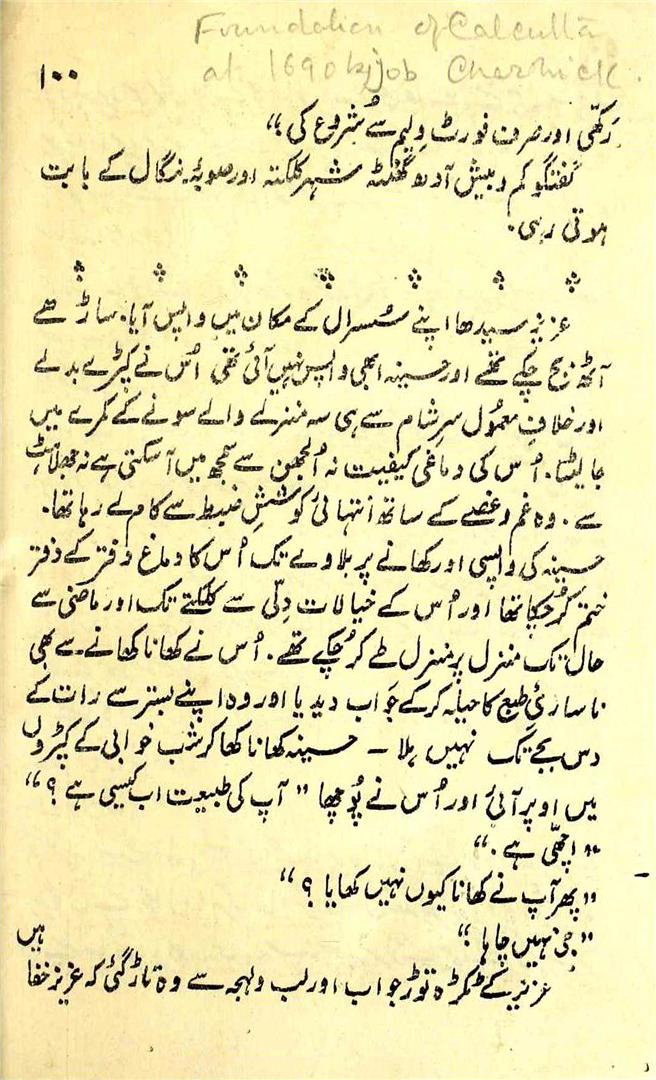 Foundation of Calcutta
at 1690 by Job Charnick.
۱۰۰
رکھّی اور صرف فورٹ ولیم سے شروع کی ؛“
گفتگو کم و بیش آدھ گھنٹہ شہر کلکتہ اور صوبۂ بنگال کے بابت
ہوتی رہی.
عزیز سیدھا اپنے سُسرال کے مکان میں واپس آیا. ساڑھے
آٹھ بج چکے تھے اور حسینہ ابھی واپس نہیں آئی تھی اُس نے کپڑے بدلے
اور خلافِ معمول سرِشام سے ہی سہ منزلے والے سونے کے کمرے میں
جا لیٹا. اُس کی دماغی کیفیت نہ اُلجھن سے سمجھ میں آسکتی ہے نہ جھلاہٹ
سے. وہ غم و غصے کے ساتھ انتہائی کوششِ ضبط سے کام لے رہا تھا.
حسینہ کی واپسی اور کھانے پر بلاوے تک اُس کا دماغ دفتر کے دفتر
ختم کرچکا تھا اور اُس کے خیالات دِلّی سے کلکتے تک اور ماضی سے
حال تک منزل پر منزل طے کرچکے تھے. اُس نے کھانا کھانے سے بھی
ناسازئِ طبع کا حیلہ کرکے جواب دیدیا اور وہ اپنے بستر سے رات کے
دس بجے تک نہیں ہلا – حسینہ کھانا کھا کر شب خوابی کے کپڑوں
میں اوپر آئی اور اُس نے پُوچھا ”آپ کی طبیعت اب کیسی ہے ؟“
”اچھّی ہے.“
”پھر آپ نے کھانا کیوں نہیں کھایا ؟“
”جی نہیں چاہا ؛“
عزیز کے ٹکڑہ توڑ جواب اور لب و لہجہ سے وہ تاڑ گئی کہ عزیز خفا
ہیں